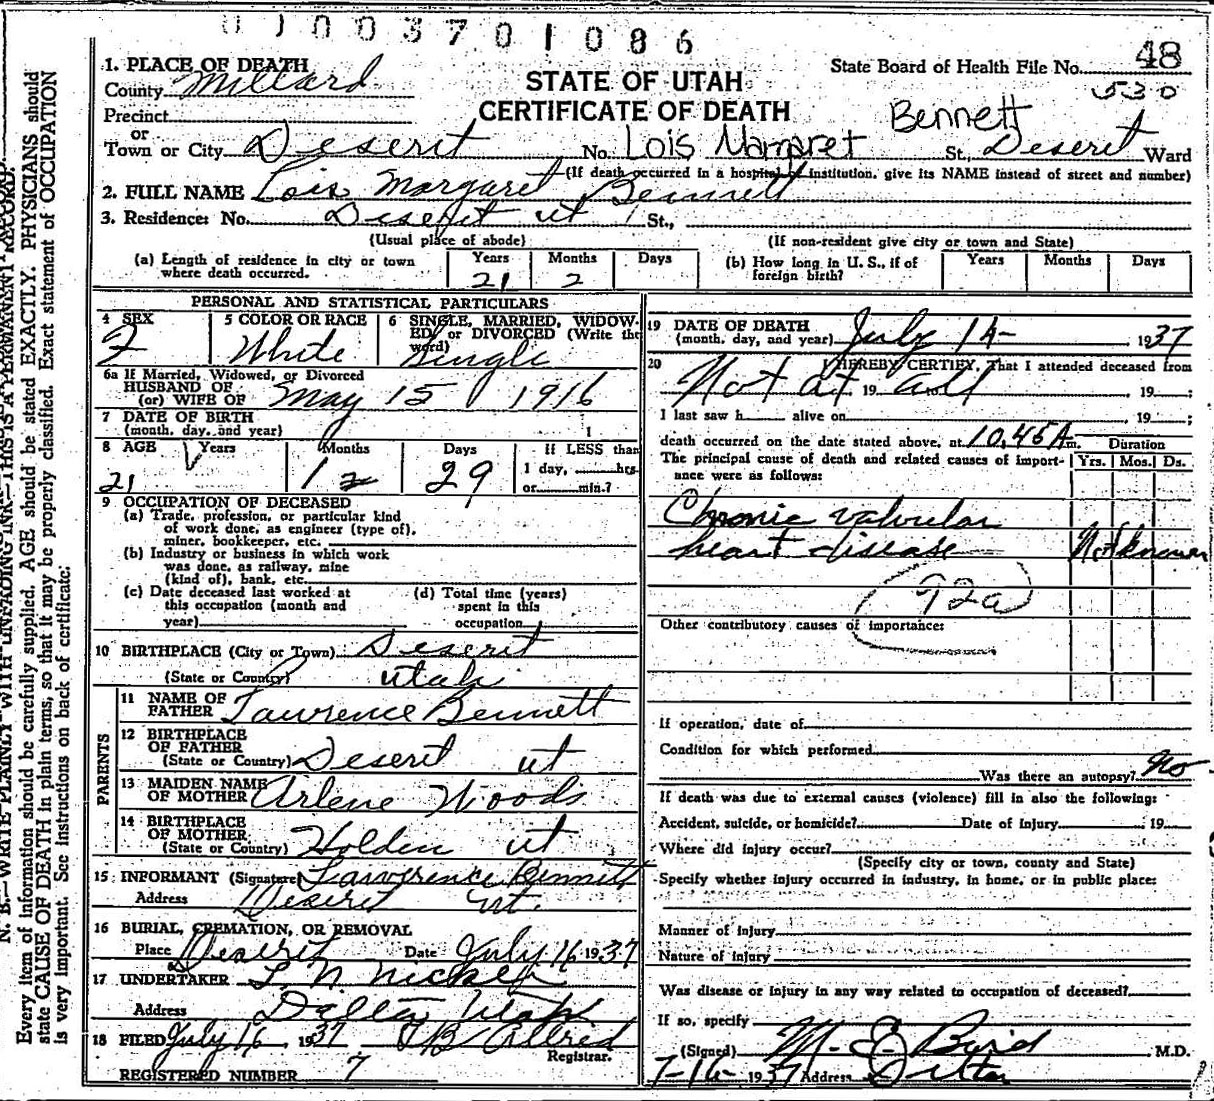 0 1 0 0 3 7 0 1 0 8 6
48
State Board of Health File No.
530
STATE OF UTAH
CERTIFICATE OF DEATH
1. PLACE OF DEATH
County Millard
Precinct
or
Town or City Deseret No. Lois Margaret Bennett St., Deseret Ward
(If death occurred in a hospital or institution, give its NAME instead of street and number)
2. FULL NAME Lois Margaret Bennett
3. Residence: No. Deseret ut St.,
(Usual place of abode) (If non-resident give city or town and State)
(a) Length of residence in city or town where death occurred. Years 21 Months 2 Days
(b) How long in U. S., if of foreign birth? Years Months Days
PERSONAL AND STATISTICAL PARTICULARS
4 SEX F
5 COLOR OR RACE White
6 SINGLE, MARRIED, WIDOWED, or DIVORCED (Write the word) Single
6a If Married, Widowed, or Divorced
HUSBAND OF
(or) WIFE OF May 15 1916
7 DATE OF BIRTH
(month, day, and year)
8 AGE Years 21 Months 1 2 Days 29
If LESS than
1 day, hrs.
or min.?
9 OCCUPATION OF DECEASED
(a) Trade, profession, or particular kind
of work done, as engineer (type of),
miner, bookkeeper, etc.
(b) Industry or business in which work
was done, as railway, mine
(kind of), bank, etc.
(c) Date deceased last worked at
this occupation (month and
year)
(d) Total time (years)
spent in this
occupation
10 BIRTHPLACE (City or Town) Deseret
(State or Country) Utah
PARENTS
11 NAME OF
FATHER Lawrence Bennett
12 BIRTHPLACE
OF FATHER
(State or Country) Deseret ut
13 MAIDEN NAME
OF MOTHER Arlene Woods
14 BIRTHPLACE
OF MOTHER
(State or Country) Holden ut
15 INFORMANT (Signature) Lawrence Bennett
Address Deseret Ut.
16 BURIAL, CREMATION, OR REMOVAL
Place Deseret Date July 16 1937
17 UNDERTAKER
Address Utah
18 FILED July 16, 1937
Registrar.
REGISTERED NUMBER 7
19 DATE OF DEATH
(month, day, and year) July 14- 1937
20 I HEREBY CERTIFY, That I attended deceased from
Not at 19 all , 19 ;
I last saw h alive on , 19 ;
death occurred on the date stated above, at 10,45 A m.
The principal cause of death and related causes of importance were as follows:
Duration
Yrs. Mos. Ds.
Chronic valvular
heart disease Not known
92a
Other contributory causes of importance:
If operation, date of
Condition for which performed
Was there an autopsy? No
If death was due to external causes (violence) fill in also the following:
Accident, suicide, or homicide? Date of injury 19
Where did injury occur?
(Specify city or town, county and State)
Specify whether injury occurred in industry, in home, or in public place:
Manner of injury
Nature of injury
Was disease or injury in any way related to occupation of deceased?
If so, specify
(Signed) M. E. Bird M.D.
7-16- 1937 Address Delta
N. B.—WRITE PLAINLY WITH UNFADING INK—THIS IS A PERMANENT RECORD.
Every item of information should be carefully supplied. AGE should be stated EXACTLY. PHYSICIANS should
state CAUSE OF DEATH in plain terms, so that it may be properly classified. Exact statement of OCCUPATION
is very important. See instructions on back of certificate.